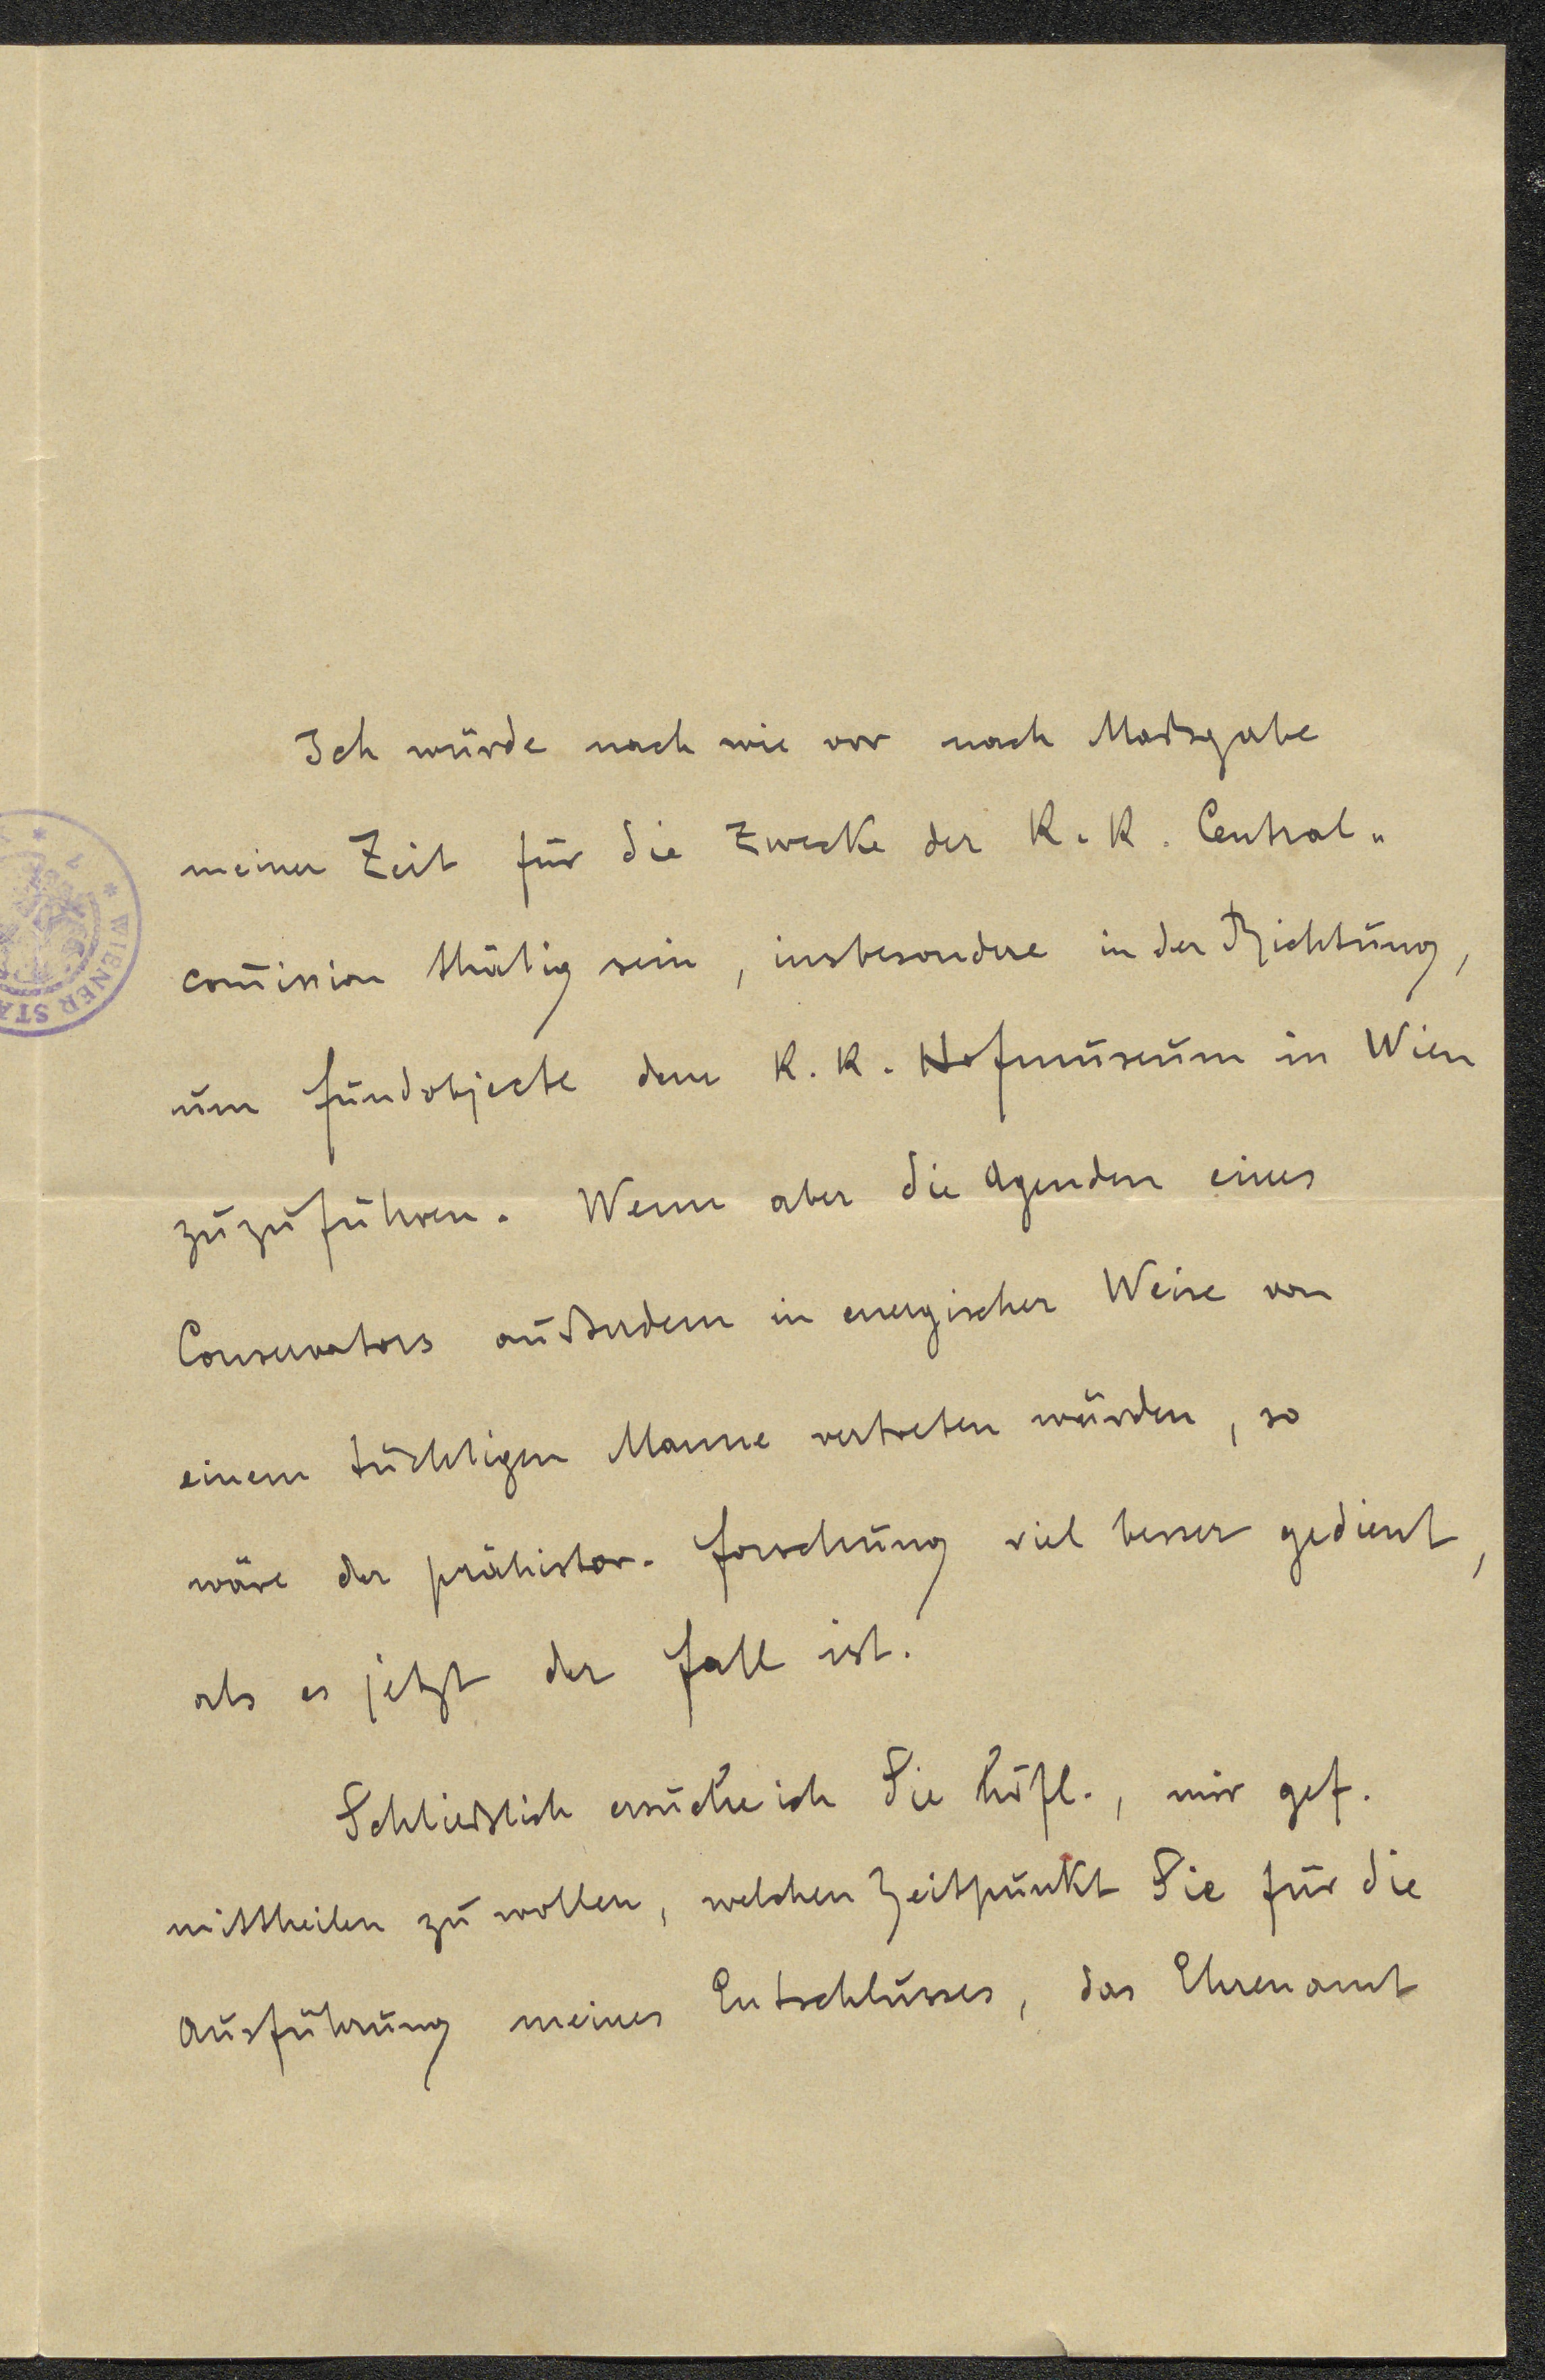 Ich würde nach wie vor nach Maßgabe
meiner Zeit für die Zwecke der K. K. Central-
com̄ission thätig sein, insbesondere in der Richtung,
um Fundobjecte dem K. K. Hofmuseum in Wien
zuzuführen. Wenn aber die Agenden eines
Conservators außerdem in energischer Weise von
einem tüchtigen Manne vertreten würden, so
wäre der prähistor. Forschung viel besser gedient,
als es jetzt der Fall ist.
Schließlich ersuche ich Sie höfl., mir gef.
mittheilen zu wollen, welchen Zeitpunkt Sie für die
Ausführung meines Entschlusses, das Ehrenamt
WIENER